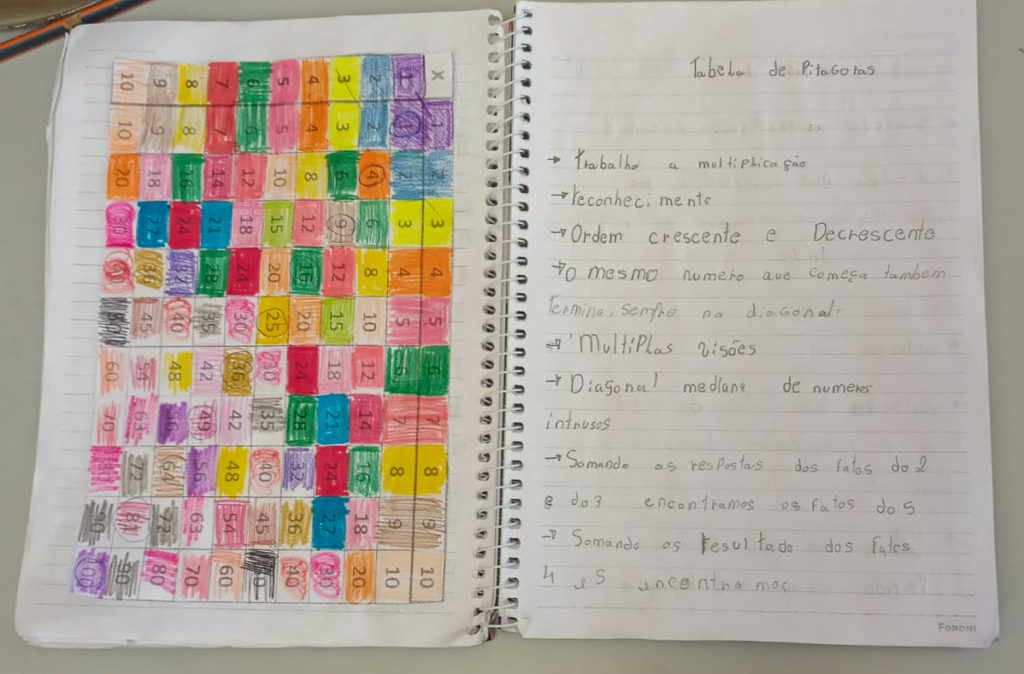 X 1 2 3 4 5 6 7 8 9 10
1 1 2 3 4 5 6 7 8 9 10
2 2 4 6 8 10 12 14 16 18 20
3 3 6 9 12 15 18 21 24 27 30
4 4 8 12 16 20 24 28 32 36 40
5 5 10 15 20 25 30 35 40 45 50
6 6 12 18 24 30 36 42 48 54 60
7 7 14 21 28 35 42 49 56 63 70
8 8 16 24 32 40 48 56 64 72 80
9 9 18 27 36 45 54 63 72 81 90
10 10 20 30 40 50 60 70 80 90 100
Tabela de Pitagoras
→ trabalha a multiplicação
→ reconheci mento
→ Ordem crescente e Decrescente
→ O mesmo numero que começa tambem
termino, sempre na diagonal.
→ Multiplas visões
→ Diagonal mediana de numeros
intrusos
→ Somando as respostas dos fatos do 2
e do 3 encontramos os fatos do 5
→ Somando os resultado dos fatos
4 e 5 encontramos
FORONI